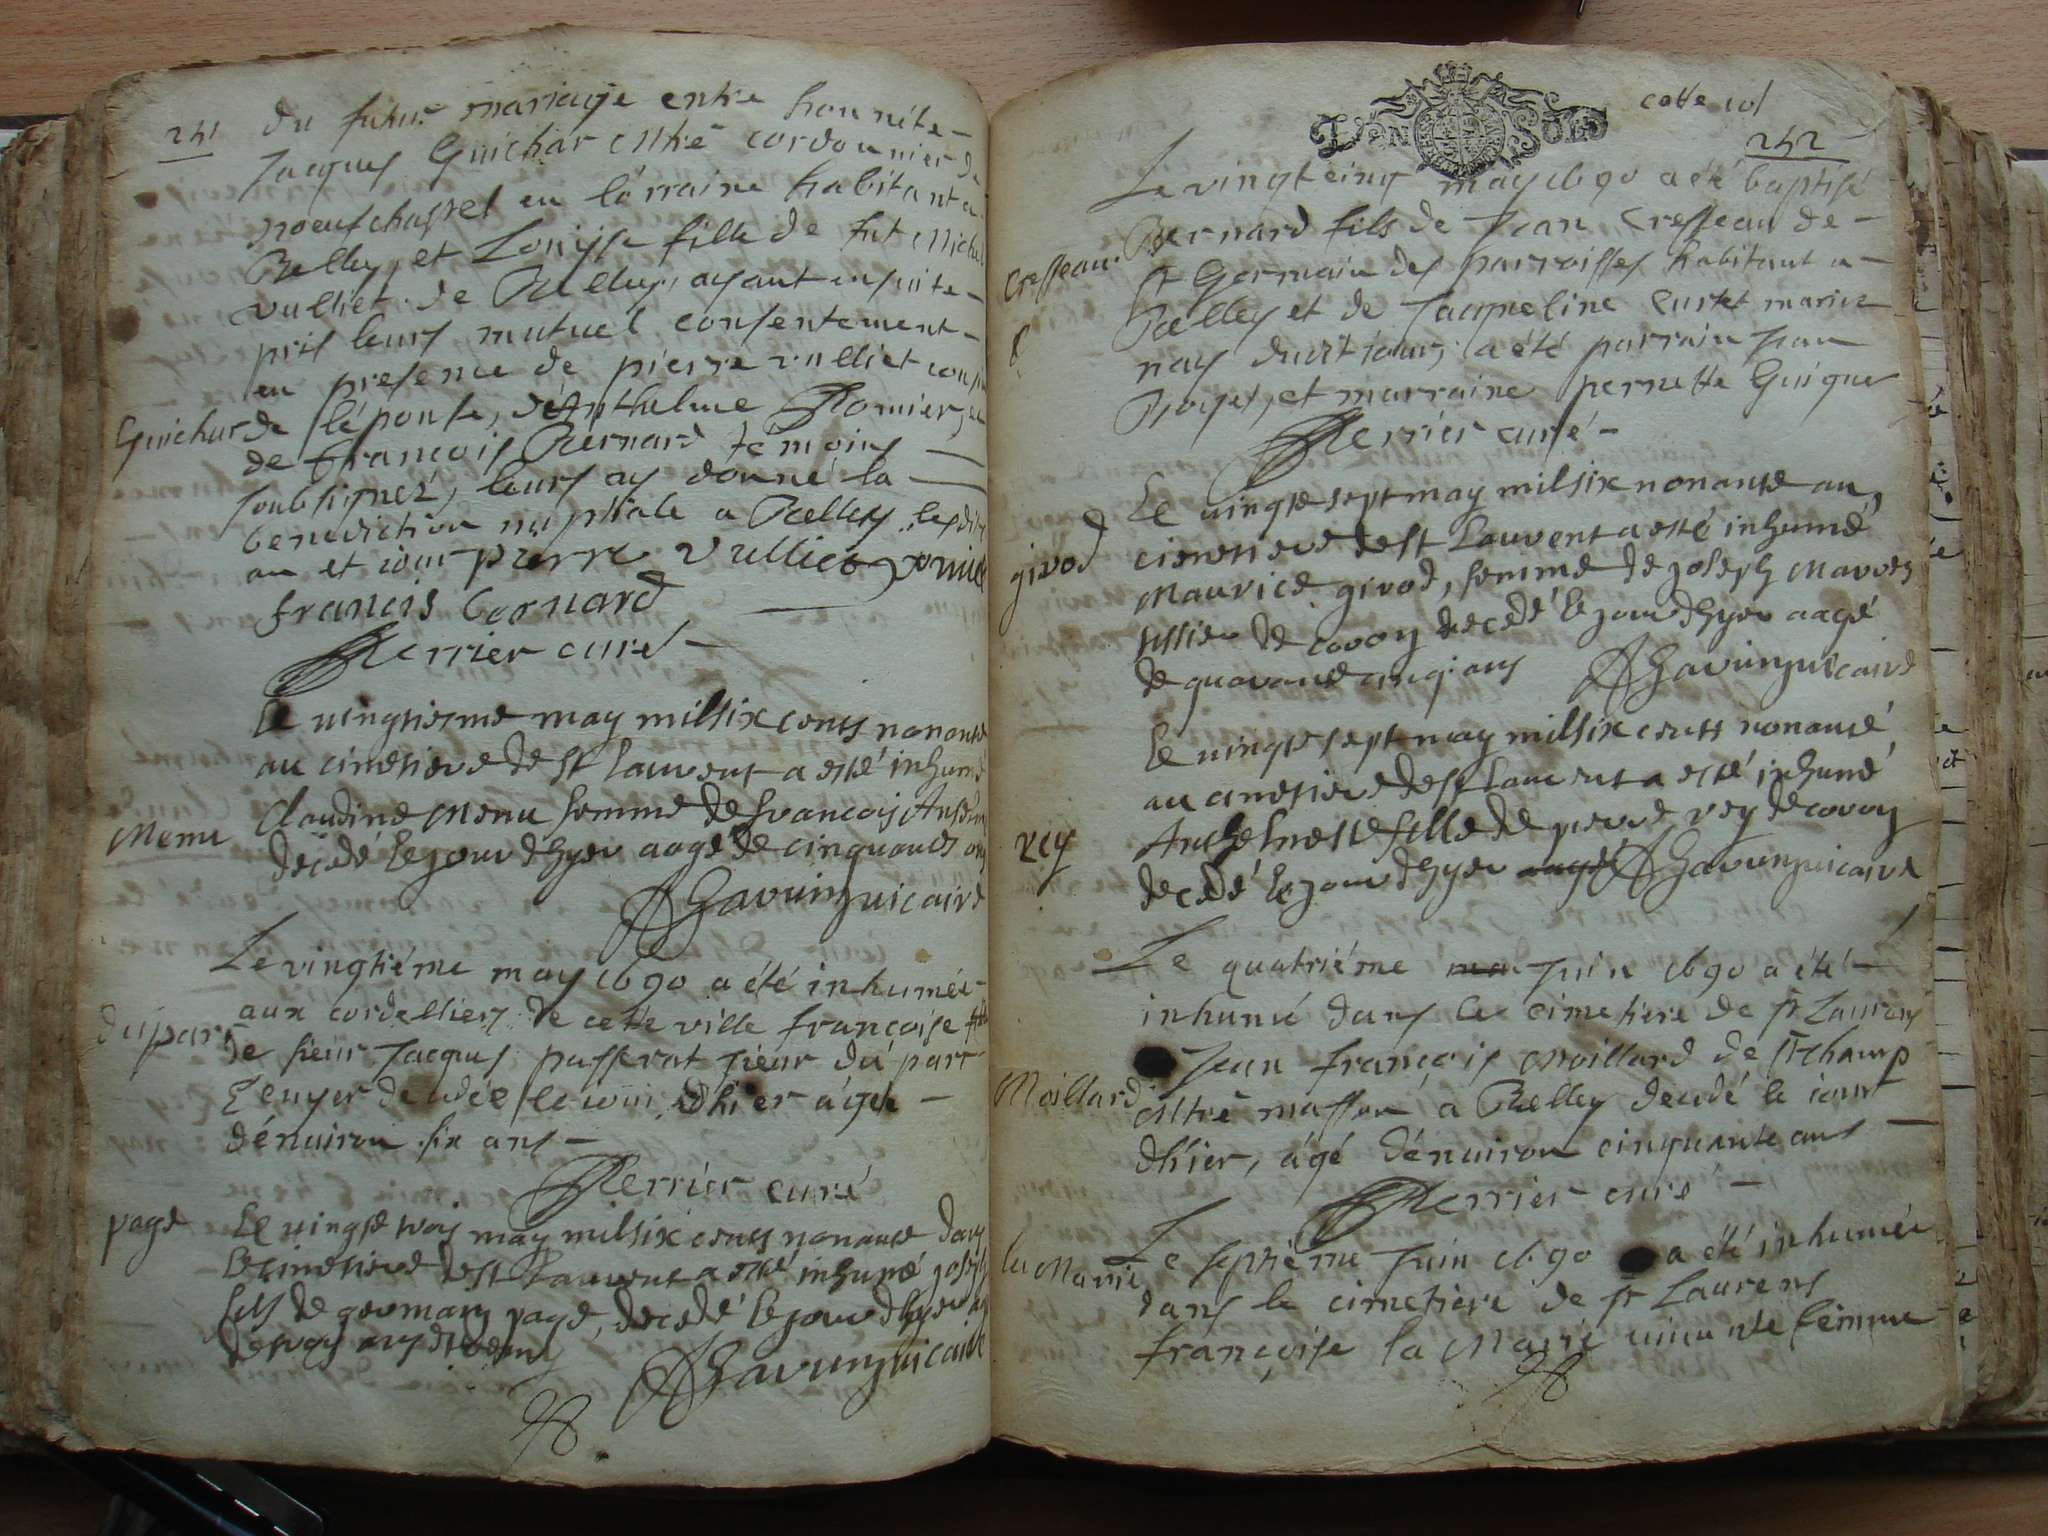 241
du futur mariage entre honnéte
Jacques Guichar Mtré cordonnier de
noeufchastel en lórraine habitant a
Belley, et Louyse fille de fut Michel
vulliet de Belley, ayant ensuite
pris leurs mutuel consentement
en presence de pierre vulliet
Guichar de léponse, d'Anthelme Romier, et
de François Bernard témoins
soubsignéz, leurs ay donné la
benediction nuptiale a Belley lesdits
an et iour pierre Vulliet
francois bernard
Perrier curé
Le vingtiesme may milsix cents nonante
au cimetiere de st Laurent a esté inhumé
Menu Claudine Menu femme de francois
decedé le jour dhyer aagé de cinquante ans
vicaire
Le vingtiéme may 1690 a été inhumée
aux cordelliers de cette ville françoise fille
du part de sieur Jacques passerat sieur du part
Ecuyer decedée le iour d'hier ágée
dénuiron six ans
Perrier curé
page Le vingte trois may milsix cents nonante dans
le cimetiere de st Laurent a esté inhumé joseph
fils de germain page, decedé le jour dhyer
de trois ans
vicaire
D'EN SOLS
cotte 101
242
Le vingt cinq may 1690 a été baptisé
Cresseau Bernard fils de Jean Cresseau de
st Germain des parroisses habitant a
Belley et de Jacqueline Curtet mariée
nay dudit iour, a été parrain Jean
et marraine pernette Guigue
Perrier curé
Le vingte sept may milsix nonante au
girod cimetiere de st Lauvent a esté inhumé
Maurice girod, femme de joseph
de decedé le jour dhyer aagé
de quarante cinq ans vicaire
Le vingte sept may milsix cents nonante
au cimetiere de st Laurent a esté inhumé
rey Anthelmette fille de pierre rey de
decedé le jour dhyer vicaire
Le quatriéme Juin 1690 a été
inhumé dans le cimetiere de st Laurens
Jean françois Moillard de st champ
Moillard Mtré masson a Belley decedé le iour
dhier, ágé dénuiron cinquante ans
Perrier curé
la Marie Le septiéme Juin 1690 a été inhumée
dans le cimetiére de st Laurens
françoise la Marie viuante femme